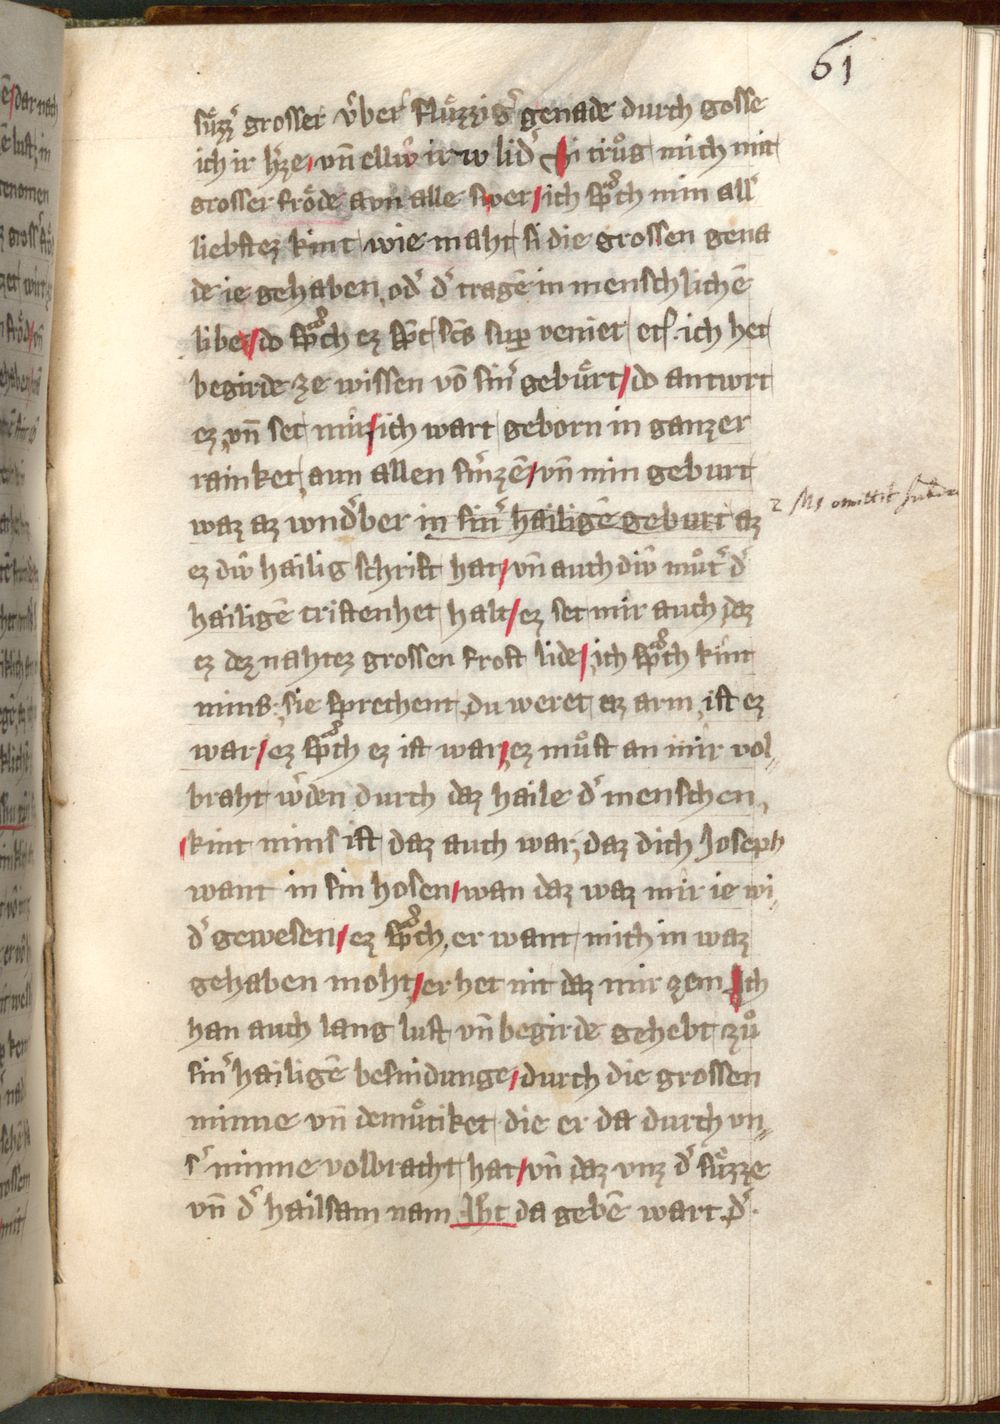 61
su̍zzer grosser v̍ber flu̍zziger genade durch gosse
ich ir h̍ze vn̄ elliv̍ irw lid̍ Si tru̍g mich mit
grosser frо̍de avn alle swer ich sp̍ch min all̍
liebstez kint wie maht si die grossen gena
de ie gehaben od̍ d̍ tragē in menschlichē
libe do sp̍ch ez sp̄c sc̄s sup veniet etſ. ich het
begirde ze wissen vō sin̍ gebu̍rt do antwrt
ez vn̄ set mir ich wart geborn in ganzer
rainket aun allen smͥzē vn̄ min geburt
waz az wnd̍ber in sin̍ hailigē geburt az
ez div̍ hailig schrift hat vn̄ auch div̍ mu̍t̍ d̍
hailigē cristenhet halt ez set mir auch daz
ez dez nahtez grossen frost lide ich sp̍ch kint
mins sie sprechent du weret az arm ist ez
war ez sp̍ch ez ist war ez mu̍st an mir vol„
braht w̍den durch daz haile d̍ menschen
kint mins ist daz auch war daz dich Joseph
want in sin hosen wan daz waz mir ie wi
d̍ gewesen ez sp̍ch er want mich in waz
gehaben moht er het nit daz mir zem Ich
han auch lang lust vn̄ begirde gehebt zu̍
sin̍ hailigē besnidunge durch die grossen
minne vn̄ demu̍tiket die er da durch vn„
s̍ minne volbracht hat vn̄ daz vnz d̍ su̍zze
vn̄ d̍ hailsam nam Ihc da gebē wart d̍
2 Ms omittit